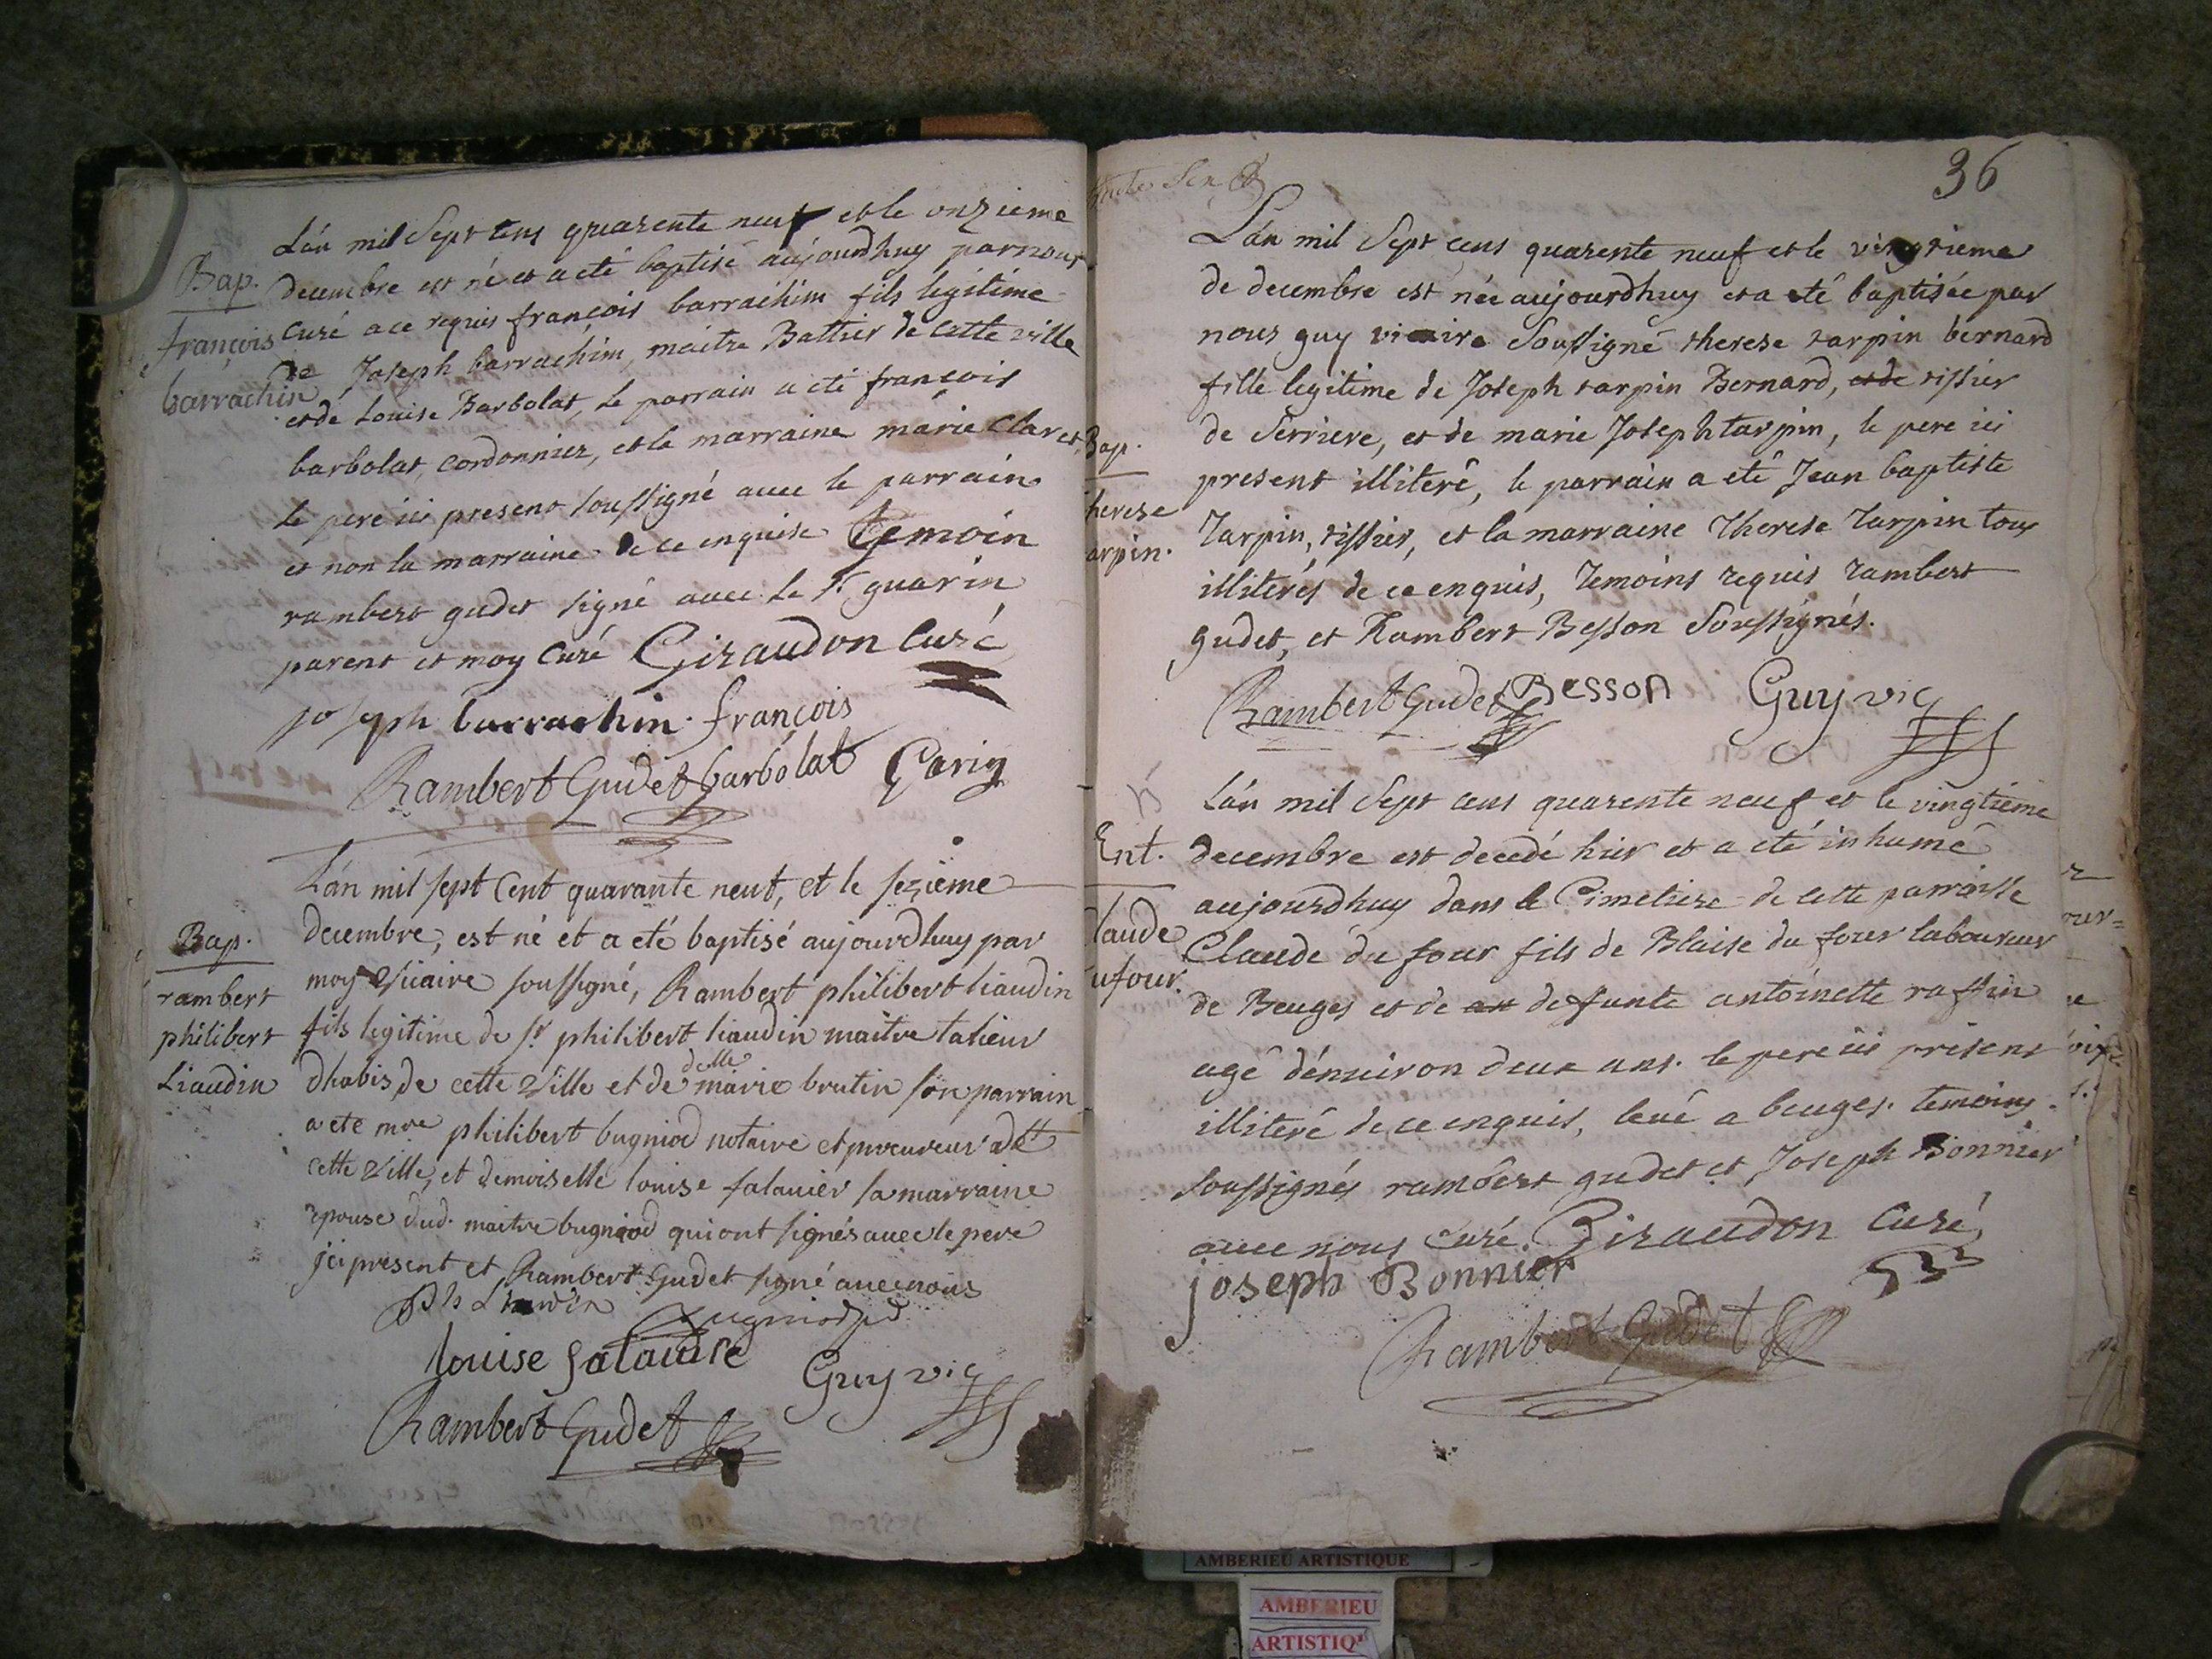 L'án mil Sept cens quarente neuf et le onzieme
Bap.
decembre est né et a eté baptisé aujourdhuy par nous
françois
barrachin
curé a ce requis françois barrachim fils legitime
de Joseph barrachim, maitre Battier de cette ville
et de Louise Barbolat, le parrain a eté françois
barbolat, cordonnier, et la marraine marie Claret
le pere ici present soussigné avec le parrain
et non la marraine de ce enquise temoin
rambert gudet signé avec le Sr. guarin
parent et moy Curé Giraudon Curé
joseph barrachin françois
Rambert Gudet barbolat Garin
L'án mil sept Cent quarante neuf, et le sezième
Bap.
rambert
philibert
Liaudin
decembre, est né et a eté baptisé aujourdhuy par
moy Vicaire soussigné, Rambert philibert liaudin
fils legitime de sr. philibert liaudin maitre talieur
dhabis de cette Ville et de delle marie brutin son parrain
a eté mre philibert bugniod notaire et procureur
cette Ville, et demoiselle louise salauier sa marraine
epouse dud. maitre bugniod qui ont signés avec le pere
jci present et Rambert Gudet signé avec nous
Bugniod
louise
Guy vic
Rambert Gudet
36
L'án mil Sept cens quarente neuf et le vingtieme
de decembre est née aujourdhuy et a eté baptisée par
nous guy vicaire Soussigné therese tarpin bernard
fille legitime de Joseph tarpin Bernard, et de tissier
Bap.
herese
arpin.
de Serriere, et de marie Joseph tarpin, le pere ici
present illiteré, le parrain a eté Jean baptiste
Tarpin, tissier, et la marraine Therese Tarpin tous
illiterés de ce enquis, Temoins requis rambert
gudet, et Rambert Besson Soussignés.
Rambert Gudet Besson Guy vic
L'án mil Sept cens quarente neuf et le vingtieme
Ent.
laude
ufour.
decembre est decedé hier et a eté inhumé
aujourdhuy dans le Cimetiere de cette parroisse
Claude du four fils de Blaise du four laboureur
de Beuges et de defunte antoinette raffin
agé dénuiron deux ans. le pere ici present
illiteré de ce enquis, levé a beuges. temoins
soussignés rambert gudet et Joseph Bonnier
avec nous Curé. Giraudon Curé
joseph Bonnier
Rambert Gudet
AMBERIEU ARTISTIQUE
AMBERIEU
ARTISTIQ